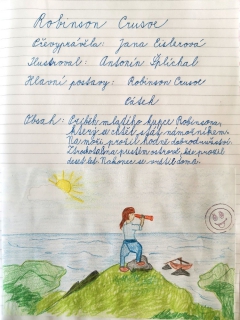 Robinson Crusoe
Převyprávěla: Jana Eislerová
Ilustroval: Antonín Šplíchal
Hlavní postavy: Robinson Crusoe
Pátek
Obsah: Příběh mladého kupce Robinsona,
který se chtěl stát námořníkem.
Na moři prožil hodně dobrodružství.
Ztroskotal na pustém ostrově, kde prožil
deset let. Nakonec se vrátil domů.